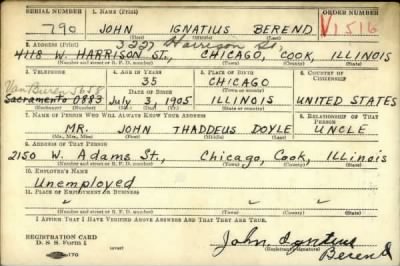 SERIAL NUMBER 1. NAME (Print) ORDER NUMBER
790 JOHN IGNATIUS BEREND V1516
(First) (Middle) (Last)
3207 Harrison St.
2. ADDRESS (Print)
4118 W. HARRISON ST., CHICAGO, COOK, ILLINOIS
(Number and street or R. F. D. number) (Town) (County) (State)
3. TELEPHONE 4. AGE IN YEARS 5. PLACE OF BIRTH 6. COUNTRY OF CITIZENSHIP
35 CHICAGO
Van Buren 5658
DATE OF BIRTH
Sacramento 0883 July 3, 1905 ILLINOIS UNITED STATES
(Exchange) (Number) (Mo.) (Day) (Yr.) (State or country)
7. NAME OF PERSON WHO WILL ALWAYS KNOW YOUR ADDRESS 8. RELATIONSHIP OF THAT PERSON
MR. JOHN THADDEUS DOYLE UNCLE
(Mr., Mrs., Miss) (First) (Middle) (Last)
9. ADDRESS OF THAT PERSON
2150 W. Adams St., Chicago, Cook, Illinois
(Number and street or R. F. D. number) (Town) (County) (State)
10. EMPLOYER'S NAME
Unemployed
11. PLACE OF EMPLOYMENT OR BUSINESS
" " " "
(Number and street or R. F. D. number) (Town) (County) (State)
I AFFIRM THAT I HAVE VERIFIED ABOVE ANSWERS AND THAT THEY ARE TRUE.
REGISTRATION CARD
D. S. S. Form 1 (over) John Igntius
(Registrant's signature)
Berend